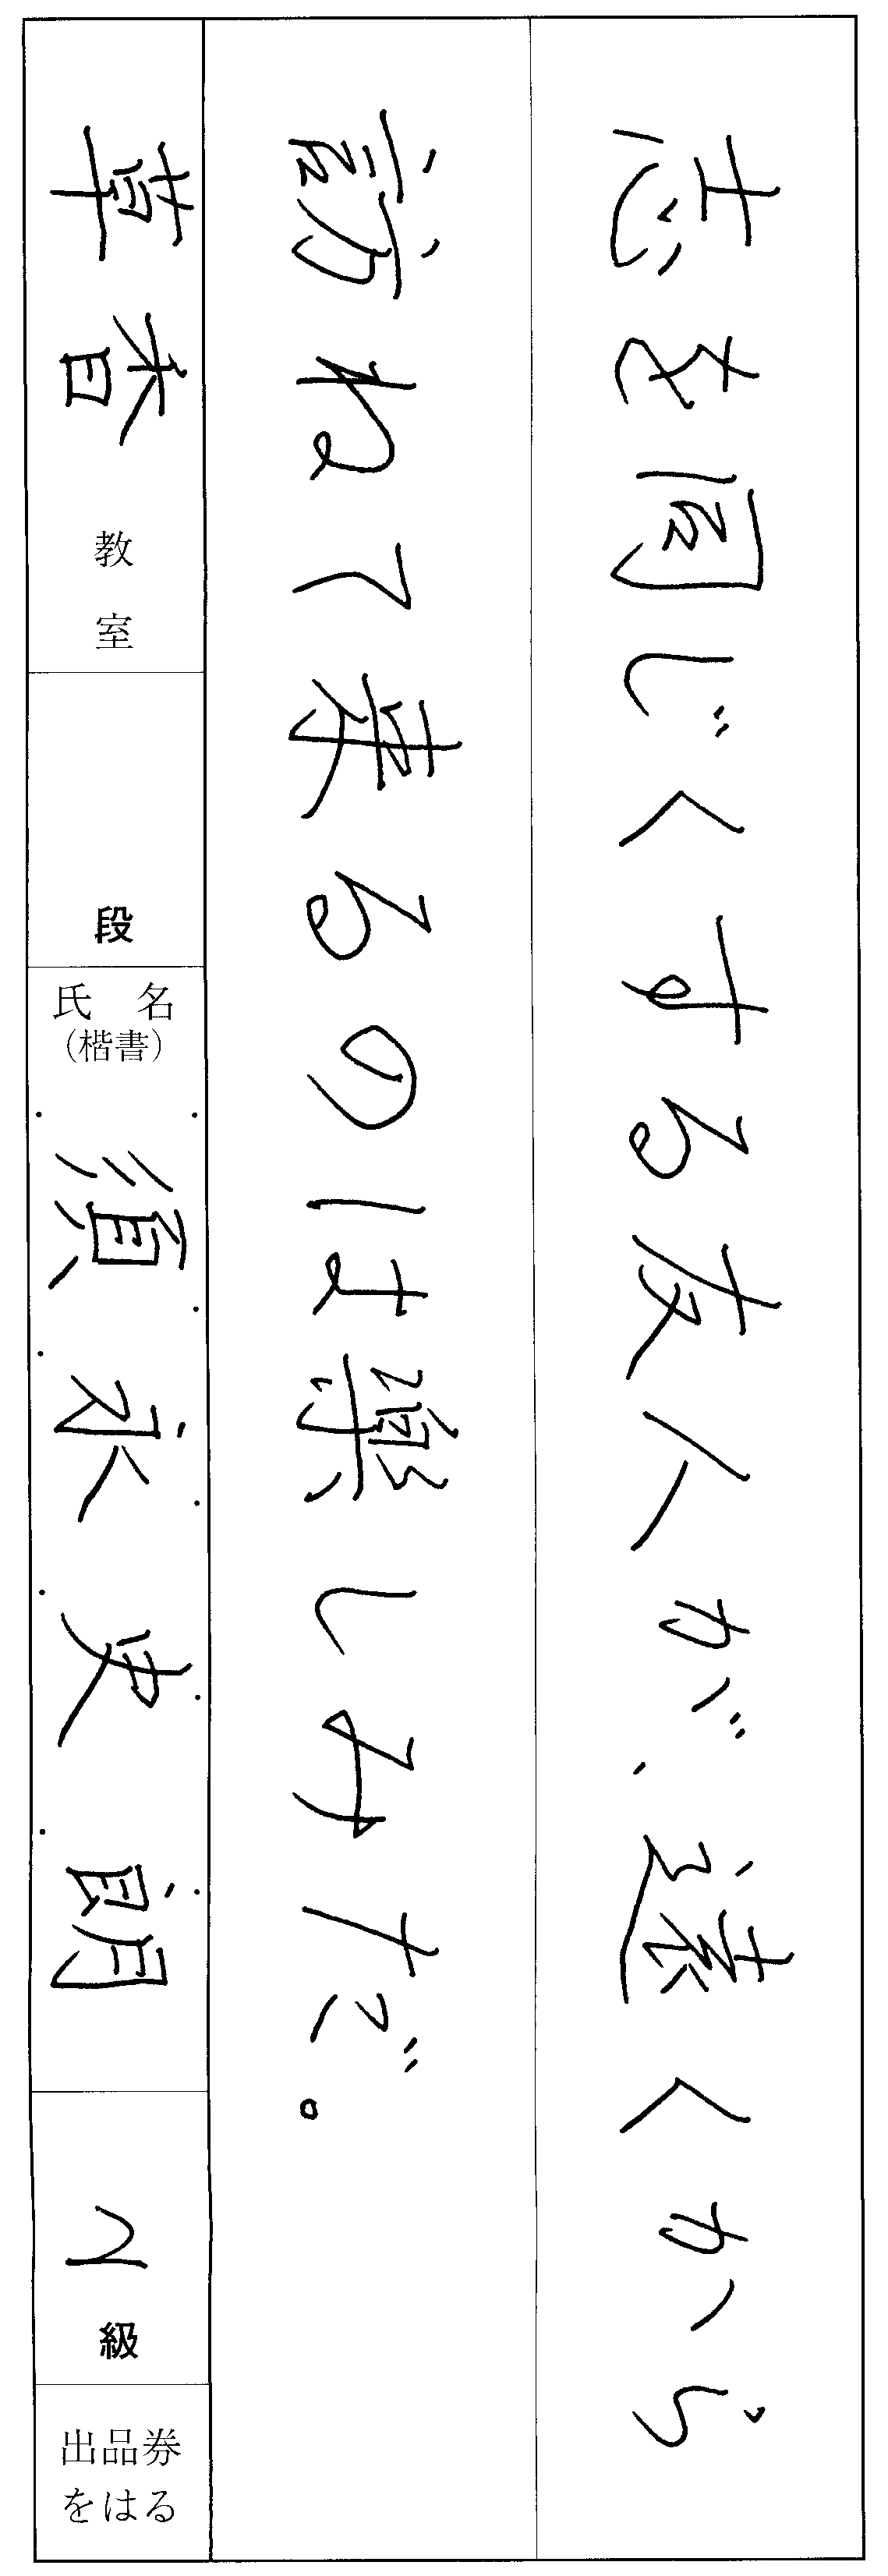 志を同じくする友人が、遠くから
訪ねて来るのは楽しみだ。
草香 教室
段
氏名
（楷書）
須永史朗
2 級
出品券
をはる